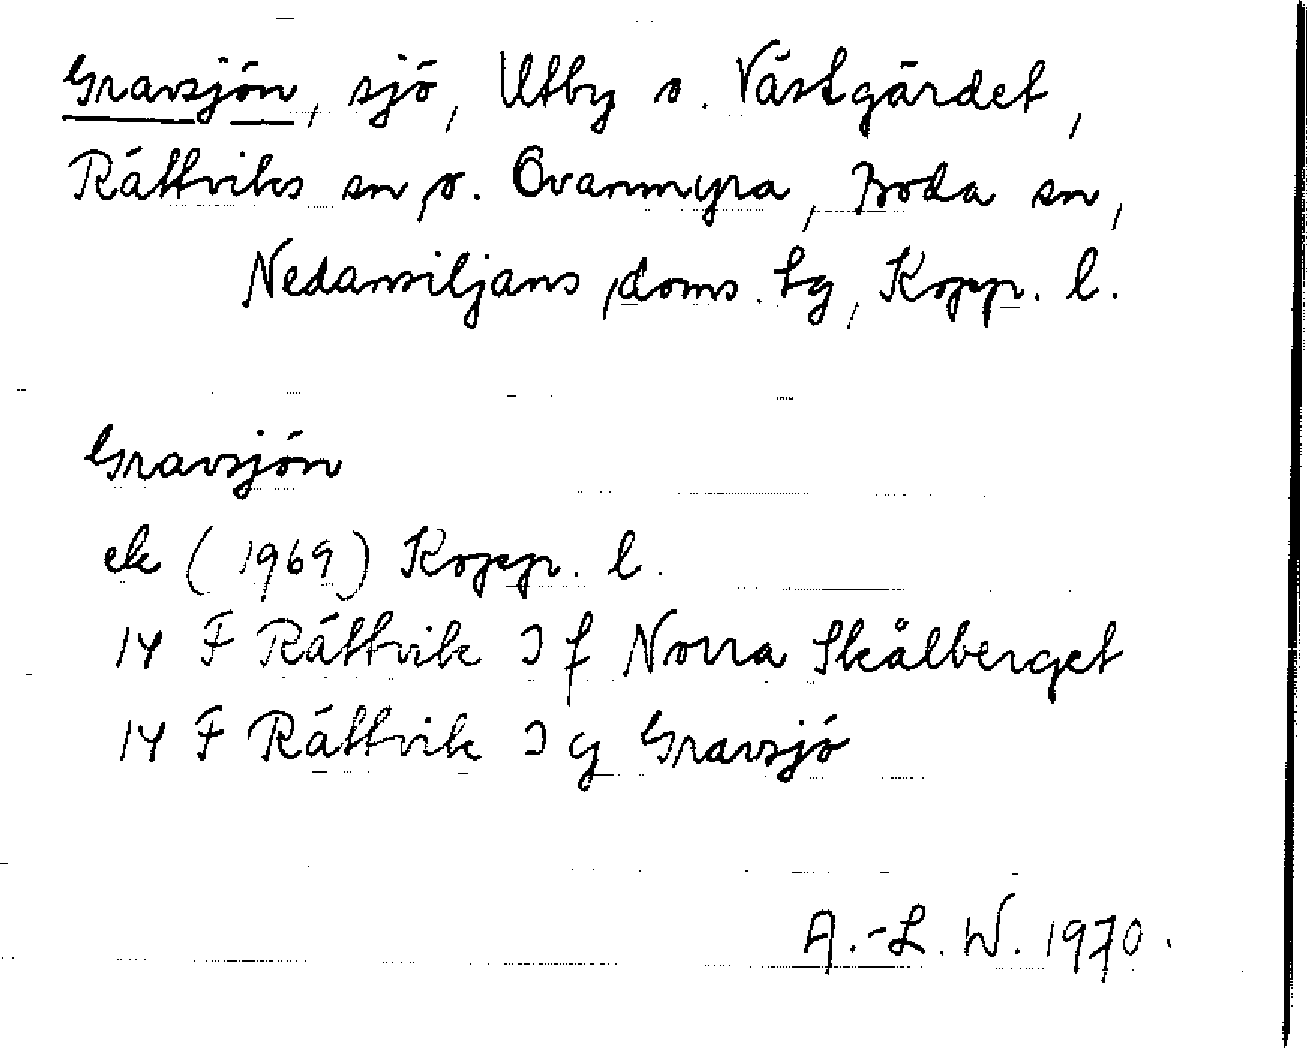 Gravsjön, sjö, Utby o. Västgärdet,
Rättviks sn, o. Ovanmyra, Boda sn,
Nedansiljans doms. lg, Kopp. l.
Gravsjön
ek (1969) Kopp. l.
14 F Rättvik 3 f Norra Skålberget
14 F Rättvik 3 g Gravsjö
A.-L. W. 1970.